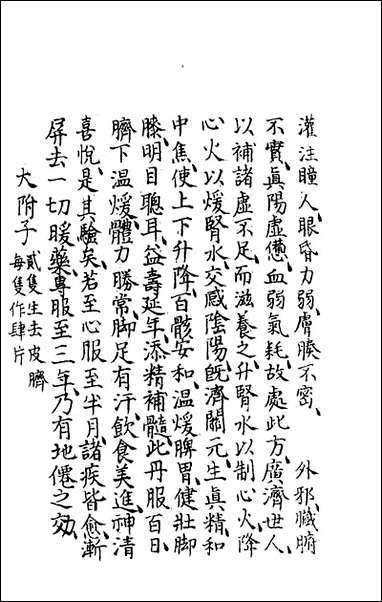 灌注瞳人眼昏力弱膚腠不密　外邪臟腑
不實眞陽虛憊血弱氣耗故處此方廣濟世人
以補諸虛不足而滋養之升腎水以制心火降
心火以煖腎水交感陰陽旣濟關元生眞精和
中焦使上下升降百骸安和温煖脾胃健壯脚
膝明目聰耳益壽延年添精補髓此丹服百日
臍下温煖體力勝常脚足有汗飲食美進神清
喜悦是其驗矣若至心服至半月諸疾皆愈漸
屏去一切暖藥專服至三年乃有地僊之効
大附子 貳隻生去皮臍
每隻作肆片